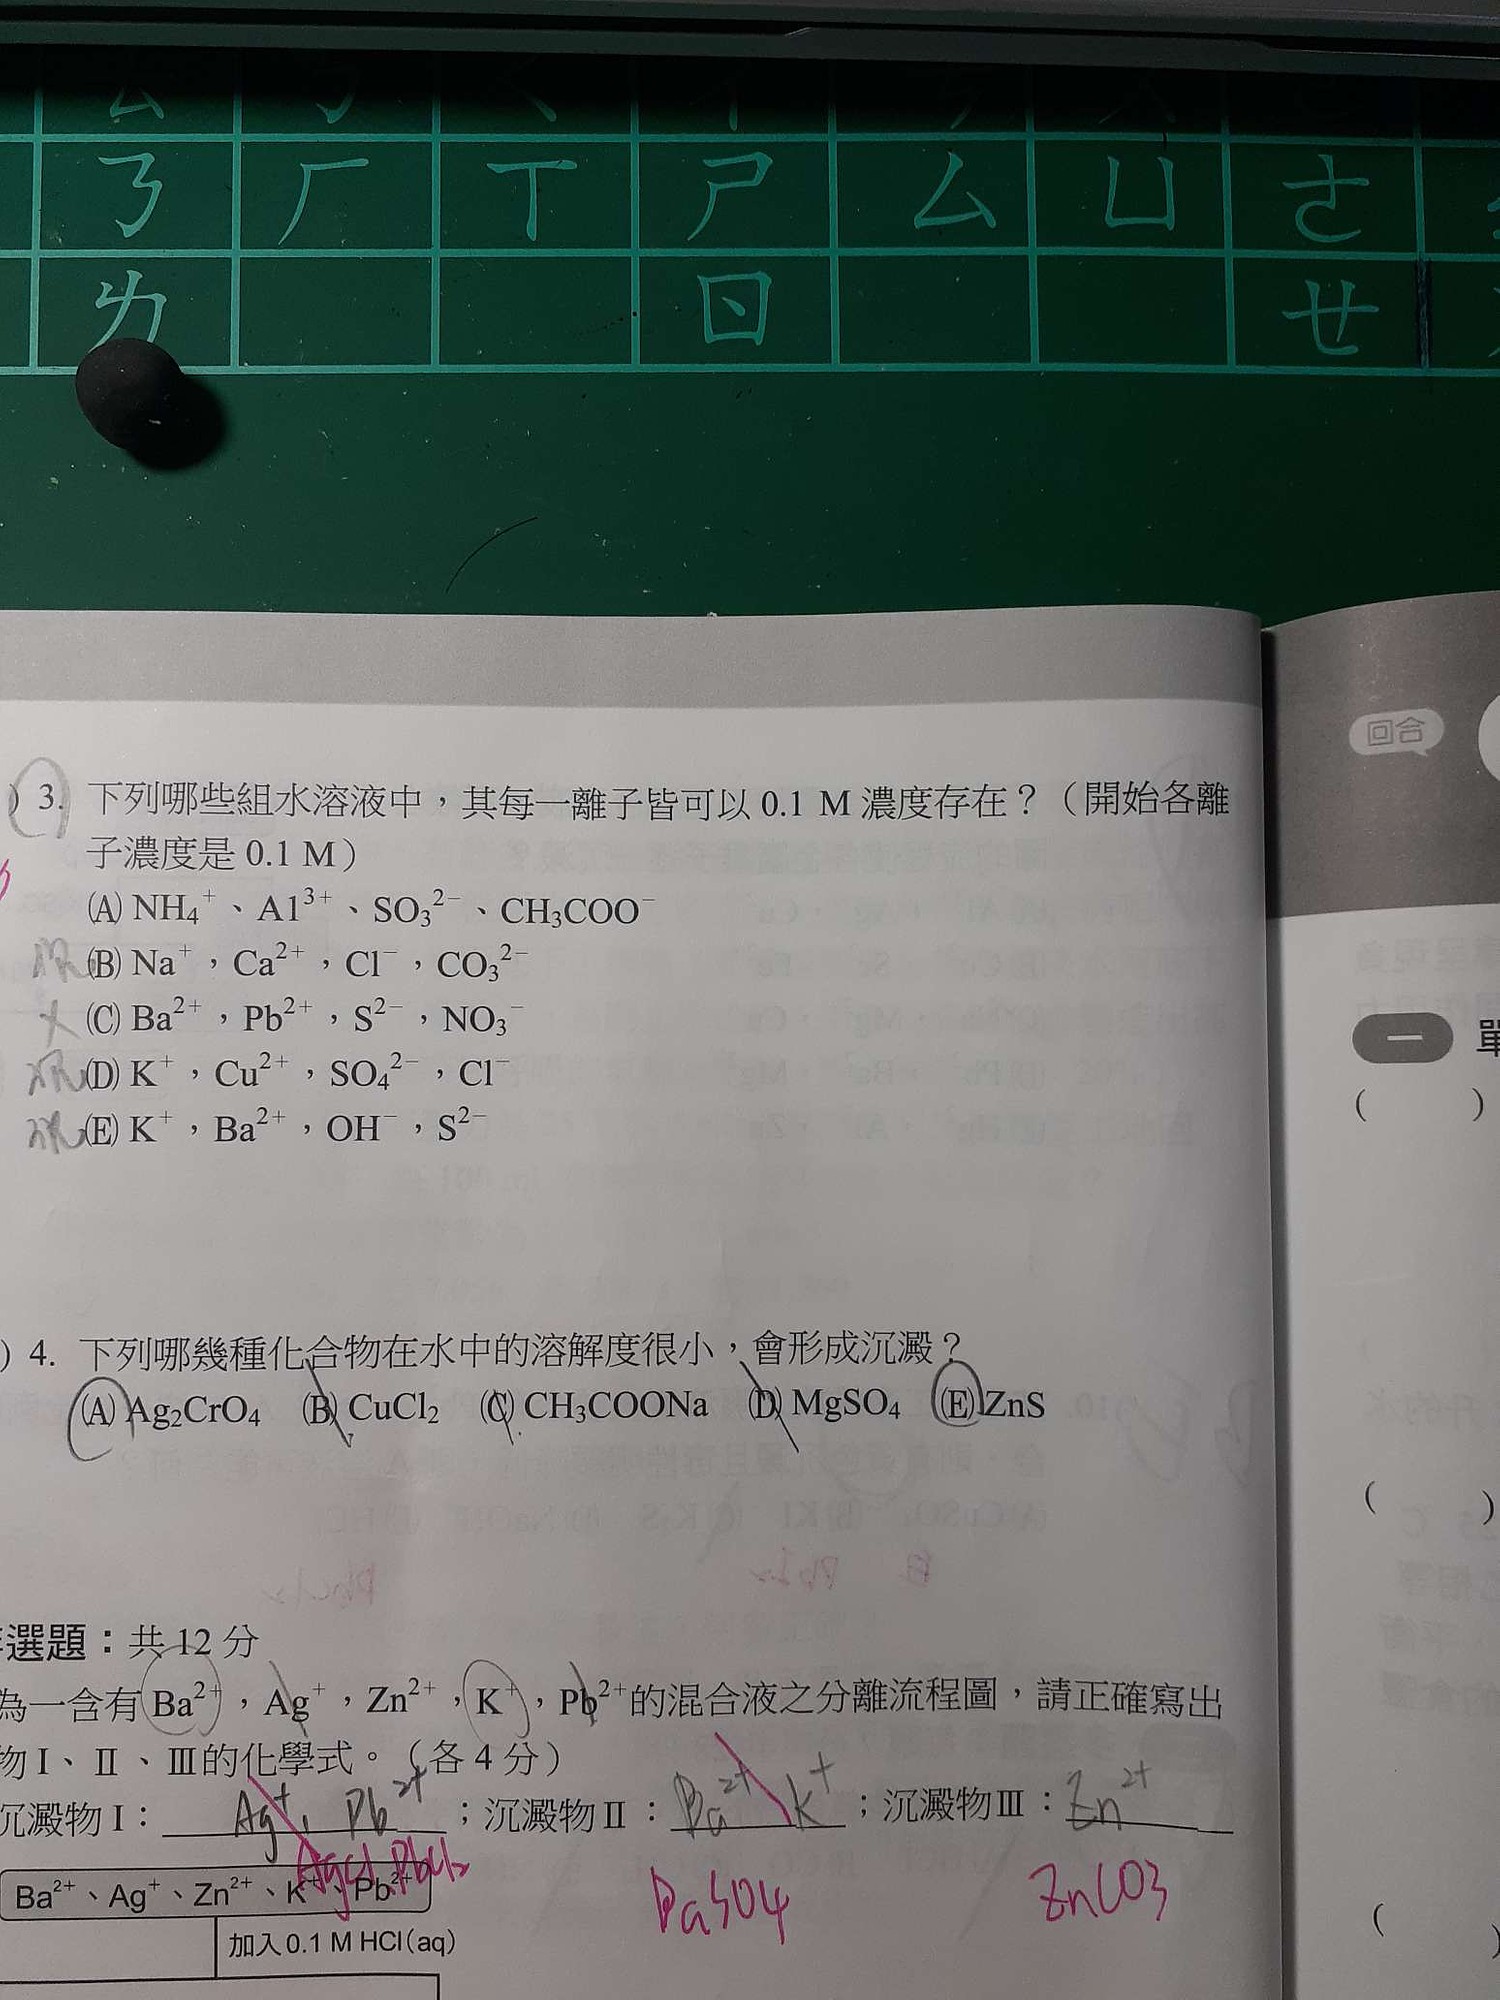 ㄋ ㄏ ㄒ ㄕ ㄙ ㄩ ㄜ
ㄌ ㄖ ㄝ
3. 下列哪些組水溶液中，其每一離子皆可以 0.1 M 濃度存在？（開始各離
子濃度是 0.1 M）
(A) NH₄⁺、Al³⁺、SO₃²⁻、CH₃COO⁻
(B) Na⁺，Ca²⁺，Cl⁻，CO₃²⁻
(C) Ba²⁺，Pb²⁺，S²⁻，NO₃⁻
(D) K⁺，Cu²⁺，SO₄²⁻，Cl⁻
(E) K⁺，Ba²⁺，OH⁻，S²⁻
) 4. 下列哪幾種化合物在水中的溶解度很小，會形成沉澱？
(A) Ag₂CrO₄ (B) CuCl₂ (C) CH₃COONa (D) MgSO₄ (E) ZnS
選題：共 12 分
為一含有 Ba²⁺，Ag⁺，Zn²⁺，K⁺，Pb²⁺的混合液之分離流程圖，請正確寫出
物 I、II、III的化學式。（各 4 分）
沉澱物 I： Ag⁺, Pb²⁺ ；沉澱物 II： Ba²⁺ K⁺ ；沉澱物 III： Zn²⁺
AgCl, PbCl₂ BaSO4 ZnCO3
Ba²⁺、Ag⁺、Zn²⁺、K⁺、Pb²⁺
加入 0.1 M HCl(aq)
回合
一 單
( )
( )
(